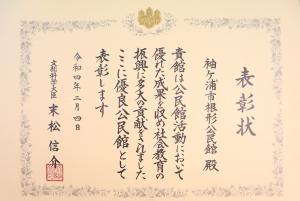 表彰状
袖ケ浦市根形公民館 殿
貴館は公民館活動において
優れた成果を収め社会教育の
振興に多大の貢献をされました
ここに優良公民館として
表彰します
令和四年二月四日
文部科学大臣 末松信介